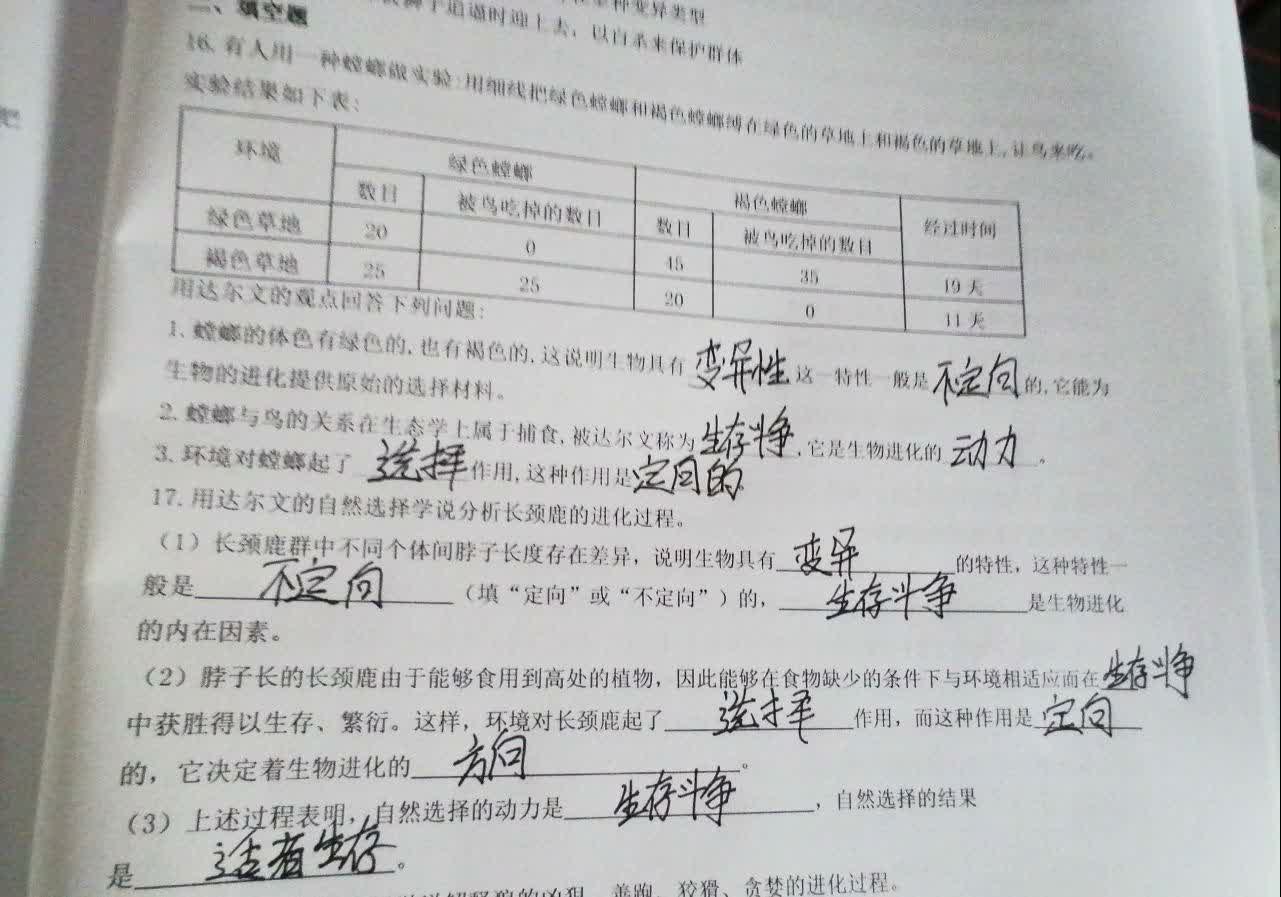 变异类型
追逼时迎上去，以自杀来保护群体
二、填空题
16.有人用一种螳螂做实验:用细线把绿色螳螂和褐色螳螂缚在绿色的草地上和褐色的草地上,让鸟来吃。
实验结果如下表:
环境 绿色螳螂 褐色螳螂 经过时间
数目 被鸟吃掉的数目 数目 被鸟吃掉的数目
绿色草地 20 0 45 35 19天
褐色草地 25 25 20 0 11天
用达尔文的观点回答下列问题:
1.螳螂的体色有绿色的,也有褐色的,这说明生物具有 变异性 这一特性一般是 不定向 的,它能为
生物的进化提供原始的选择材料。
2.螳螂与鸟的关系在生态学上属于捕食,被达尔文称为 生存斗争 ,它是生物进化的 动力 。
3.环境对螳螂起了 选择 作用,这种作用是 定向的
17.用达尔文的自然选择学说分析长颈鹿的进化过程。
（1）长颈鹿群中不同个体间脖子长度存在差异，说明生物具有 变异 的特性，这种特性一
般是 不定向 （填“定向”或“不定向”）的， 生存斗争 是生物进化
的内在因素。
（2）脖子长的长颈鹿由于能够食用到高处的植物，因此能够在食物缺少的条件下与环境相适应而在 生存斗争
中获胜得以生存、繁衍。这样，环境对长颈鹿起了 选择 作用，而这种作用是 定向
的，它决定着生物进化的 方向 。
（3）上述过程表明，自然选择的动力是 生存斗争 ，自然选择的结果
是 适者生存 。
的凶狠、善跑、狡猾、贪婪的进化过程。